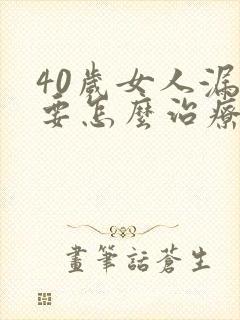 40歲女人漏
要怎麼治療
畫筆話蒼生